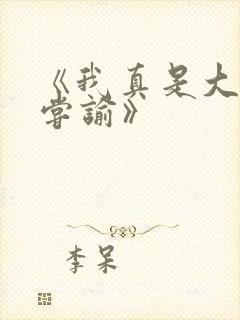 《我真是大
掌諭》
李呆